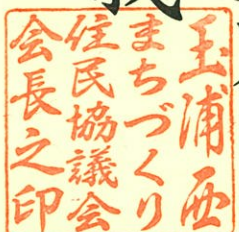 玉浦西
まちづくり
住民協議会
会長之印